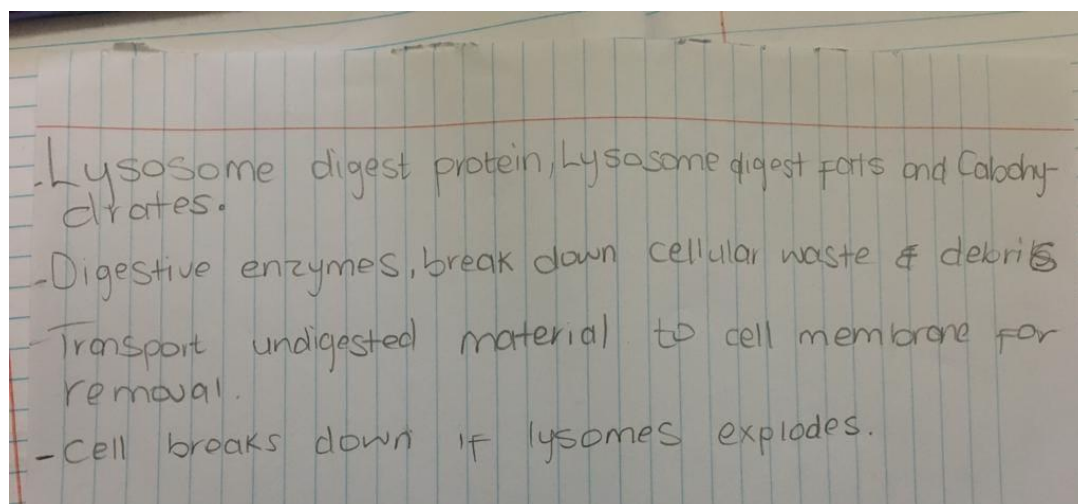 -Lysosome digest protein, Lysosome digest farts and Cabohy-
drates.
-Digestive enzymes, break down cellular waste & debris
-Transport undigested material to cell membrane for
removal.
-Cell breaks down if lysomes explodes.